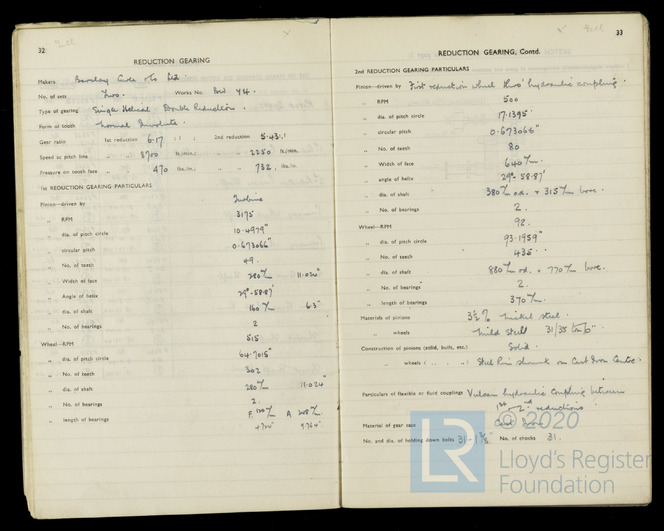 32
REDUCTION GEARING
Makers Barclay Curle & Co Ltd.
No. of sets Two. Works No. Bed Y4.
Type of gearing Single Helical Double Reduction.
Form of tooth Normal Involute.
Gear ratio 1st reduction 6.17 : 1 2nd reduction 5.43:1
Speed at pitch line 8700 ft./min.; 2250 ft./min.
Pressure on tooth face 470 lbs./in.; 732 lbs./in.
1st REDUCTION GEARING PARTICULARS
Pinion—driven by Turbine
„ RPM 3175
„ dia. of pitch circle 10.4979"
„ circular pitch 0.673066"
„ No. of teeth 49.
„ Width of face 280 m/m 11.024"
„ Angle of helix 29°-58.87'
„ dia. of shaft 160 m/m 6.3"
„ No. of bearings 2
Wheel—RPM 515
„ dia. of pitch circle 64.7015"
„ No. of teeth 302
„ dia. of shaft 280 m/m 11.024"
„ No. of bearings 2.
„ length of bearings F. 120 m/m A 248 m/m
4.724" 9.764"
33
REDUCTION GEARING, Contd.
2nd REDUCTION GEARING PARTICULARS
Pinion—driven by First reduction wheel thro' hydraulic coupling.
„ RPM 500
„ dia. of pitch circle 17.1395"
„ circular pitch 0.673066"
„ No. of teeth 80
„ Width of face 640 m/m.
„ angle of helix 29°-58.87'
„ dia. of shaft 380 m/m o.d. × 315 m/m bore.
„ No. of bearings 2.
Wheel—RPM 92.
„ dia. of pitch circle 93.1959"
„ No. of teeth 435
„ dia. of shaft 880 m/m o.d. × 770 m/m bore.
„ No. of bearings 2.
„ length of bearings 370 m/m.
Materials of pinions 3½% Nickel steel.
„ wheels Mild steel 31/35 tons/□"
Construction of pinions (solid, built, etc.) Solid.
„ wheels ( „ „ ) Steel Rim shrunk on Cast Iron Centre.
Particulars of flexible or fluid couplings Vulcan hydraulic coupling between
1st & 2nd reductions
Material of gear case Cast Iron
No. and dia. of holding down bolts 31 - 1⅜" No. of chocks 31.
© 2020
LR
Lloyd's Register
Foundation